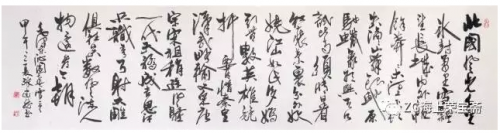 北国风光千里
冰封万里雪飘
望长城内外惟
余莽莽大河上下
顿失滔滔山舞银蛇原
驰蜡象欲与天公
试比高须晴日看
红装素裹分外
妖娆江山如此多娇
引无数英雄竞
折腰惜秦皇
汉武略输文采唐
宗宋祖稍逊风骚
一代天骄成吉思汗
只识弯弓射大雕
俱往矣数风流人
物还看今朝
毛泽东沁园春雪
甲午
ZG海上聚宝斋